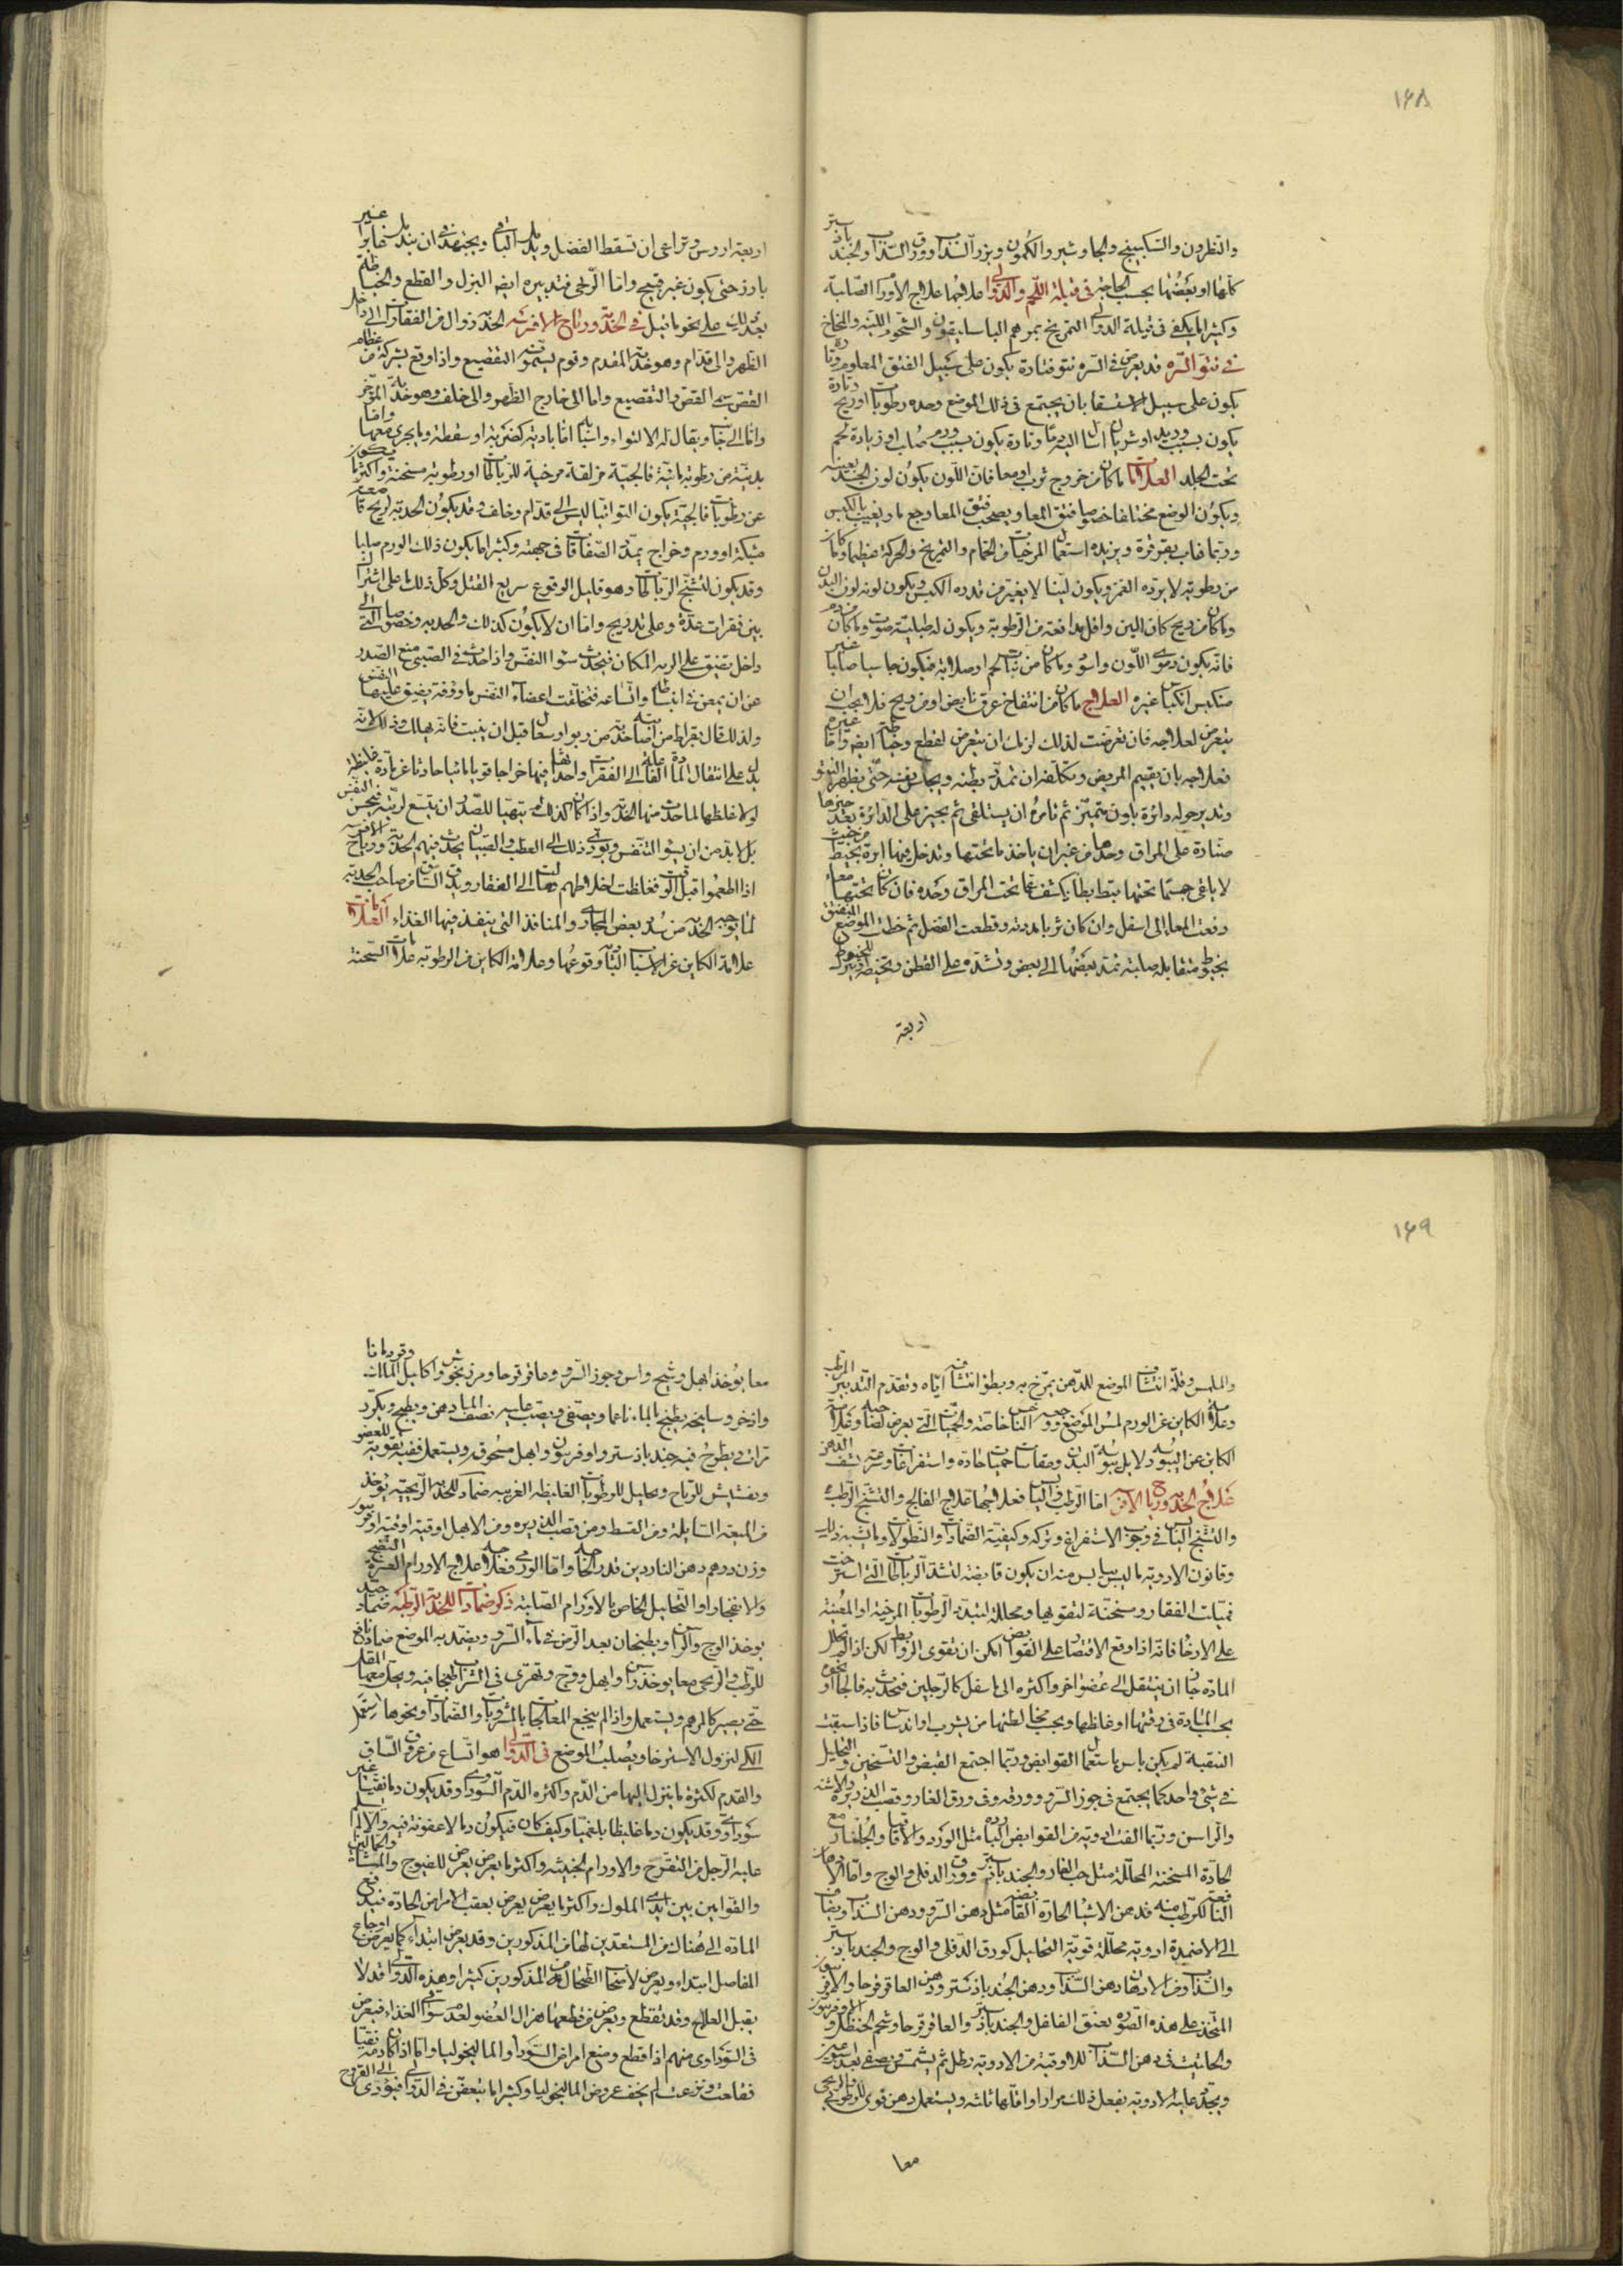 ١٦٨
والنطرون والسكبينج والجاوشير والكمون وبزر السذاب وورق السذاب والجندبادستر
كلها او بعضها بحسب الحاجة في قيلة اللحم والدوالي علاجهما علاج الاورام الصلبة
وكثيرا ما يكفى في قيلة الدوالي التمريخ بمرهم الباسليقون والشحوم اللينة والمخاخ
في نتو السره قد يعرض في السره نتو فتارة يكون على سبيل الفتق المعلوم وتارة
يكون على سبيل الاستسقا بان يجتمع في ذلك الموضع وحده رطوبات او ريح وتارة
يكون بسبب وريد او شريان اسال اليه دما وتارة يكون بسبب ورم صلب او زيادة لحم
تحت الجلد العلامات ما كان من خروج ثرب او معا فان اللون يكون لون الجسد بعينه
ويكون الوضع مختلفا خصوصا فتق المعا ويصحب فتق المعا وجع ما ويغيب بالكبس
وربما غاب بقرقرة ويزيده استعمال المرخيات من الحمام والتمريخ والحركة عظما وما كان
من رطوبة لا يرده الغمز ويكون لينا لا يغير من قدره الكبس ويكون لونه لون البدن
وما كان من ريح كان الين واقل مدافعة من الرطوبة ويكون له طبلية صوت وما كان من دم
فانه يكون دموي اللون واسود وما كان من نبات لحم او صلابة فيكون جاسيا صلبا غير
منكبس انكباس غيره العلاج ما كان من انتفاخ عرق نابض او من ريح فلا يجب ان
يتعرض لعلاجه فان تعرضت لذلك لزمك ان تتعرض لقطع وخياطة ايضا واما غيره
فعلاجه بان يقيم المريض وتكلفه ان تمدد بطنه ويحابس نفسه حتى يظهر النتو
وتدير حوله دائرة بلون يتميز ثم تامره ان يستلقي ثم يحيز على الدائرة بعد حيزها
صنارة على المراق وحدها من غير ان ياخذ ما تحتها وتدخل فيها ابرة بخيط من حيث
لا يلقى جسما تحتها بتط بطا يكشف عما تحت المراق وحده فان كان تحتها معاء
دفعت المعاء الى اسفل وان كان ثربا مددته وقطعت الفضل ثم خطت الموضع المنفتق
بخيوط متقابلة صلبة تمد بعضها الى بعض وتشده على القطن وتخيطه وتترك للخيوط
اربعة
اربعة اروس وتراعي ان تسقط الفضل ويدمل الباقي ويجتهد في ان يندمل غابرا غير
بارز حتى يكون غير قبيح واما الريحي فتدبيره ايضا البزل والقطع والخياطة
بعد ذلك على نحو ما قيل في الحدبة ورياح الافرسة الحدبة زوال من الفقارات الى داخل
الظهر والى قدام وهو حدبة المقدم وقوم يسمونه التقصيع واذا وقع بشركة من عظام
القص سمى القعس والتقصيع واما الى خارج الظهر والى خلف وهو حدبة المؤخر
واما الى جانب ويقال له الالتواء واسبابه اما بادية كضربة او سقطة وما يجري معهما واما
بدنية من رطوبة مائية فالجية مزلقة مرخية للرباطات او رطوبة مسخنة واكثر ما يكون
عن رطوبات فالجية يكون التوائيا ليس الى قدام وخلف وقد يكون الحدبة لريح قد
مشبكة او ورم وخراج يمدد الصفاقات في جهته وكثيرا ما يكون ذلك الورم صلبا
وقد يكون لتشنج الرباطات وهو قليل الوقوع سريع القتل وكل ذلك اما على اشتراك
بين فقرات عدة وعلى تدريج واما ان لا يكون كذلك والحدبة وخصوصا التي الى
داخل يضيق على الريه المكان فيحدث سوء النفس واذا حدث في الصبي منع الصدر
عن ان يمعن في انبساطه واتساعه فتختلف اعضاء النفس ماووفة يضيق عليها النفس
ولذلك قال بقراط من اصابته حدبة من ربو او سعال قبل ان ينبت فانه يهلك وذلك لانه
يدل على انتقال المادة الفاعلة الى الفقرات واحداثها فيها خراجا قويا ما ثباتا حادثا عن مادة غليظة
لولا غلظها لما حدث منها الحدبة واذا كان كذلك لم يتهيا للصدر ان يتسع لريته فيحسن النفس
بل لا بد من ان يسوء التنفس ويؤدي ذلك الى العطب والصبيان يحدث فيهم الحدبة ورياح الافرسة
اذا اطعموا قبل الوقت فغلظت اخلاطهم ومالت الى الفقار ويدق الساق من صاحب الحدبة
لما يوجبه الحدبة من سد بعض المجاري والمنافذ التي ينفذ فيها الغذاء العلامات
علامة الكاين عن الاسباب البادية وقوعها وعلامة الكاين من الرطوبة علامات السحنة
١٦٩
والملمس وقلة انتشاف الموضع للدهن يمرخ به وبطؤ انتشافه اياه وتقدم التدبير المرطب
وعلامة الكاين عن الورم لمس الموضع ووجعه خس الناخس خاصة والحميات التي يعرض لصاحبه وعلامة
الكاين عن اليبوسه دلايل يبوسة البدن ومقاساة حميات حادة واستفراغات وسرعة نشف الدهن
علاج الحدبة ورياح الافرسة اما الرطب واليابس فعلاجهما علاج الفالج والتشنج الرطب
والتشنج اليابس في وجوب الاستفراغ وتركه وكيفية الضمادات والنطولات وما يشبه ذلك
وقانون الادوية ما ليس يبابس منه ان يكون قابضة لتشد الرباطات التي استرخت
فميلت الفقار ومسخنة لتقويها ومحللة لتبدد الرطوبات المرخية او المعينة
على الارخاء فانه اذا وقع الاقتصار على القوابض امكن ان تقوى الروابط لكن اذا لم تحلل
المادة جاز ان ينتقل الى عضو اخر واكثره الى اسفل كالرجلين فتحدث به فالجا او نحوه
بحسب المادة في رقتها او غلظها وبحسب مخالطتها من تشرب او اندساس فاذا سبقت
التنقية لم يكن باس باستعمال القوابض وربما اجتمع القبض والتسخين والتحليل
في شيء واحد كما يجتمع في جوز السرو وورقه وفي ورق الغار وقصب الذريرة والاشنه
والراسن وربما الفت ادوية من القوابض الباردة مثل الورد والاقاقيا والجلنار مع
الحادة المسخنة المحللة مثل حب الغار والجندبادستر وورق الدفلى والوج واما الادهان
النافعة لكرطب منه فدهن الاشياء الحارة القابضة مثل دهن السرو ودهن السذاب ويضاف
الى الاضمدة ادوية محللة قوية التحليل كورق الدفلى والوج والجندبادستر
والسذاب ومن الادهان دهن السذاب ودهن الجندبادستر ودهن العاقرقرحا والافربيون
المتخذ على هذه الصورة يعتق الفلفل والجندبادستر والعاقرقرحا وشحم الحنظل والافربيون
والحلتيت في دهن السذاب للاوقية من الادوية رطل ثم يشمس ويصفى بعد اسبوعين
ويجدد عليه الادوية يفعل ذلك مرارا واقلها ثلثه ويستعمل دهن قوى للرطوبي والريحي
معا
معا يؤخذ ابهل وشيح واس وجوز السرو وعاقرقرحا ومرزنجوش واكليل الملك وقردمانا
واذخر وسليخه يطبخ بالماء ناعما ويصفى ويصب عليه نصف الماء دهن ويطبخ ويكرر
مرات ويطرح فيه جندبادستر وافربيون وابهل مسحوق ويستعمل ففيه تقوية للعضو
وتفشيش للرياح وتحليل للرطوبات الغليظه الغريبه ضماد للحدبة الريحية يؤخذ
من الميعة السائلة ومن القسط ومن قصب الذريره ومن الابهل اوقية اوقية افربيون
وزن درهم دهن الناردين قدر الحاجة واما الورمي فعلاجه علاج الاورام العسرة النضج
والانفجار او التحليل الخاص بالاورام الصلبة ذكر ضمادات للحدبة الرطبة ضماد جيد
يؤخذ الوج والراسن ويطبخان بعد الرض في ماء السرو ويضمد به الموضع ضماد نافع
للرطب والريحي معا يؤخذ راسن وابهل ووج وتهرى في الشراب طبخا فيه ويحل معها المقل
حتى يصير كالمرهم ويستعمل واذا لم ينجع المعالجات بالمشروبات والضمادات ونحوها استعمل
الكي ليزول الاسترخاء ويصلب الموضع في الدوالي هو اتساع من عروق الساق
والقدم لكثرة ما ينزل اليها من الدم واكثره الدم السوداوي وقد يكون دما نقيا غير
سوداوي وقد يكون دما غليظا بلغميا وكيف كان فيكون دما لا عفونة فيه والا لما سلم
عليه الرجل من التقرح والاورام الخبيثه واكثر ما يعرض يعرض للفيوج والمشاة والحمالين
والقوامين بين ايدي الملوك واكثر ما يعرض يعرض بعقب الامراض الحادة فيندفع
المادة الى هناك من المستعدين لها من المذكورين وقد يعرض ابتداء كما يعرض اوجاع
المفاصل ابتداء ويعرض لاصحاب الطحال من المذكورين كثيرا وهذه الدوالي قد لا
يقبل العلاج وقد تقطع ويعرض من قطعها هزال العضو لعدمه سواقي الغذاء فيعرض
في السوداوي منهم اذا قطع ومنع امراض السوداء والماليخوليا واما اذا كان دمه نقيا
فقلعت ونزعت لم يخف عروض الماليخوليا وكثيرا ما يتعفن في الدوالي فيؤدي الى القروح